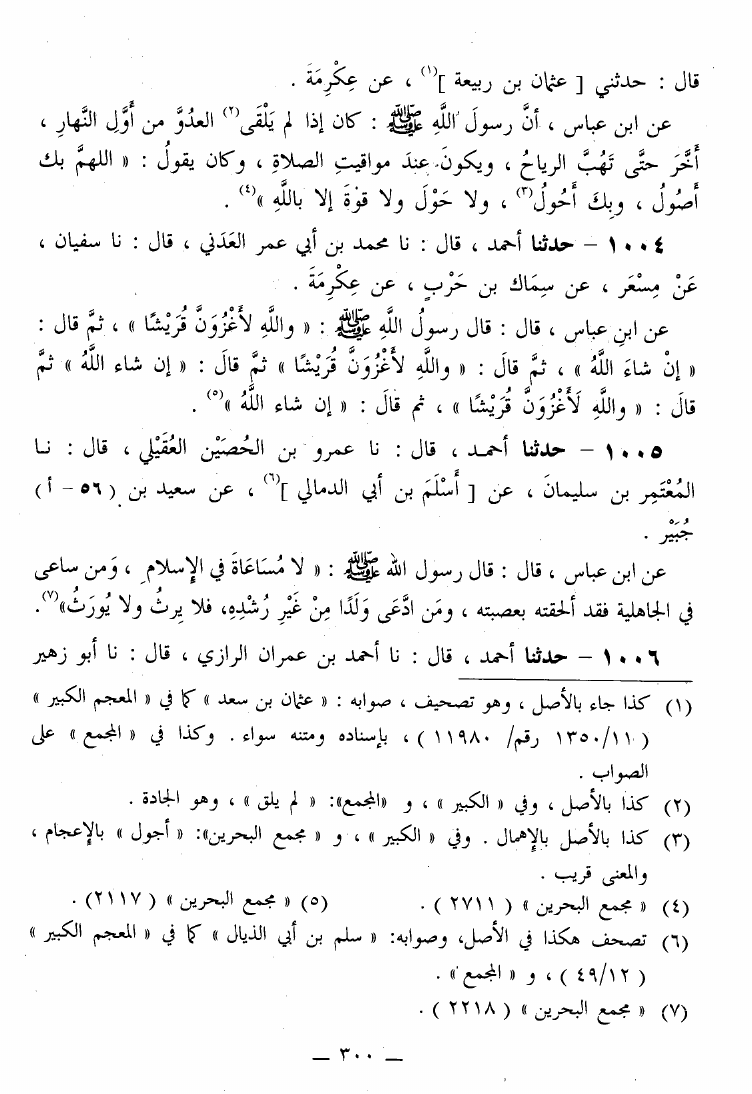 قال : حدثني [ عثمان بن ربيعة ](١) ، عن عِكْرِمَةَ .
عن ابن عباس ، أنَّ رسولَ اللَّهِ ﷺ : كان إذا لم يَلْقَى(٢) العدُوَّ من أوَّلِ النَّهارِ ،
أخَّرَ حتَّى تَهُبَّ الرياحُ ، ويكونَ عندَ مواقيتِ الصلاةِ ، وكان يقولُ : « اللهمَّ بك
أصُولُ ، وبِكَ أَحُولُ(٣) ، ولا حَوْلَ ولا قوْةَ إلا باللَّهِ »(٤) .
١٠٠٤ – حدثنا أحمد ، قال : نا محمد بن أبي عمر العَدَني ، قال : نا سفيان ،
عَنْ مِسْعَر ، عن سِمَاك بن حَرْبٍ ، عن عِكْرِمَةَ .
عن ابنِ عباس ، قال : قال رسولُ اللَّهِ ﷺ : « واللَّهِ لأغْزُوَنَّ قُرَيْشًا » ، ثمَّ قال :
« إنْ شاءَ اللَّهُ » ، ثمَّ قالَ : « واللَّهِ لأَغْزُوَنَّ قُرَيْشًا » ثمَّ قالَ : « إن شاء اللَّهُ » ثمَّ
قالَ : « واللَّهِ لَأَغْزُوَنَّ قُرَيْشًا » ، ثم قالَ : « إن شاء اللَّهُ »(٥) .
١٠٠٥ – حدثنا أحمـد ، قال : نا عمرو بن الحُصَيْن العُقَيْلي ، قال : نـا
المُعْتَمِر بن سليمانَ ، عن [ أسْلَمَ بن أبي الدمالي ](٦) ، عن سعيد بن (٥٦ – أ)
جُبَيْر .
عن ابن عباس ، قال : قال رسول الله ﷺ : « لا مُسَاعَاةَ في الإسلامِ ، وَمن ساعى
في الجاهلية فقد ألحقته بعصبته ، ومَن ادَّعَى وَلَدًا مِنْ غَيْرِ رُشْدِهِ، فلا يرثُ ولا يُورَثُ»(٧).
١٠٠٦ – حدثنا أحمد ، قال : نا أحمد بن عمران الرازي ، قال : نا أبو زهير
(١) كذا جاء بالأصل ، وهو تصحيف ، صوابه : « عثمان بن سعد » كما في « المعجم الكبير »
( ١٣٥٠/١١ رقم/ ١١٩٨٠ ) ، بإسناده ومتنه سواء . وكذا في « المجمع » على
الصواب .
(٢) كذا بالأصل ، وفي « الكبير » ، و «المجمع»: « لم يلق » ، وهو الجادة .
(٣) كذا بالأصل بالإهمال . وفي « الكبير » ، و « مجمع البحرين»: « أجول » بالإعجام ،
والمعنى قريب .
(٤) « مجمع البحرين » ( ٢٧١١ ) . (٥) « مجمع البحرين » ( ٢١١٧) .
(٦) تصحف هكذا في الأصل، وصوابه: « سلم بن أبي الذيال » كما في « المعجم الكبير »
( ٤٩/١٢ ) ، و « المجمع » .
(٧) « مجمع البحرين » ( ٢٢١٨ ) .
– ٣٠٠ –